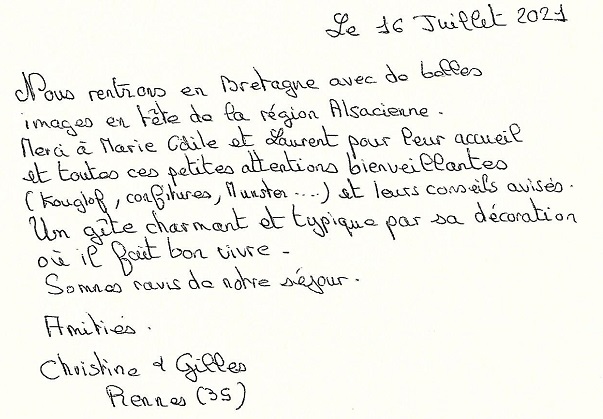 Le 16 Juillet 2021
Nous rentrons en Bretagne avec de belles
images en tête de la région Alsacienne.
Merci à Marie Odile et Laurent pour leur accueil
et toutes ces petites attentions bienveillantes
(Kouglof, confitures, Munster....) et leurs conseils avisés.
Un gîte charmant et typique par sa décoration
où il fait bon vivre -
Sommes ravis de notre séjour.
Amitiés.
Christine & Gilles
Rennes (35)